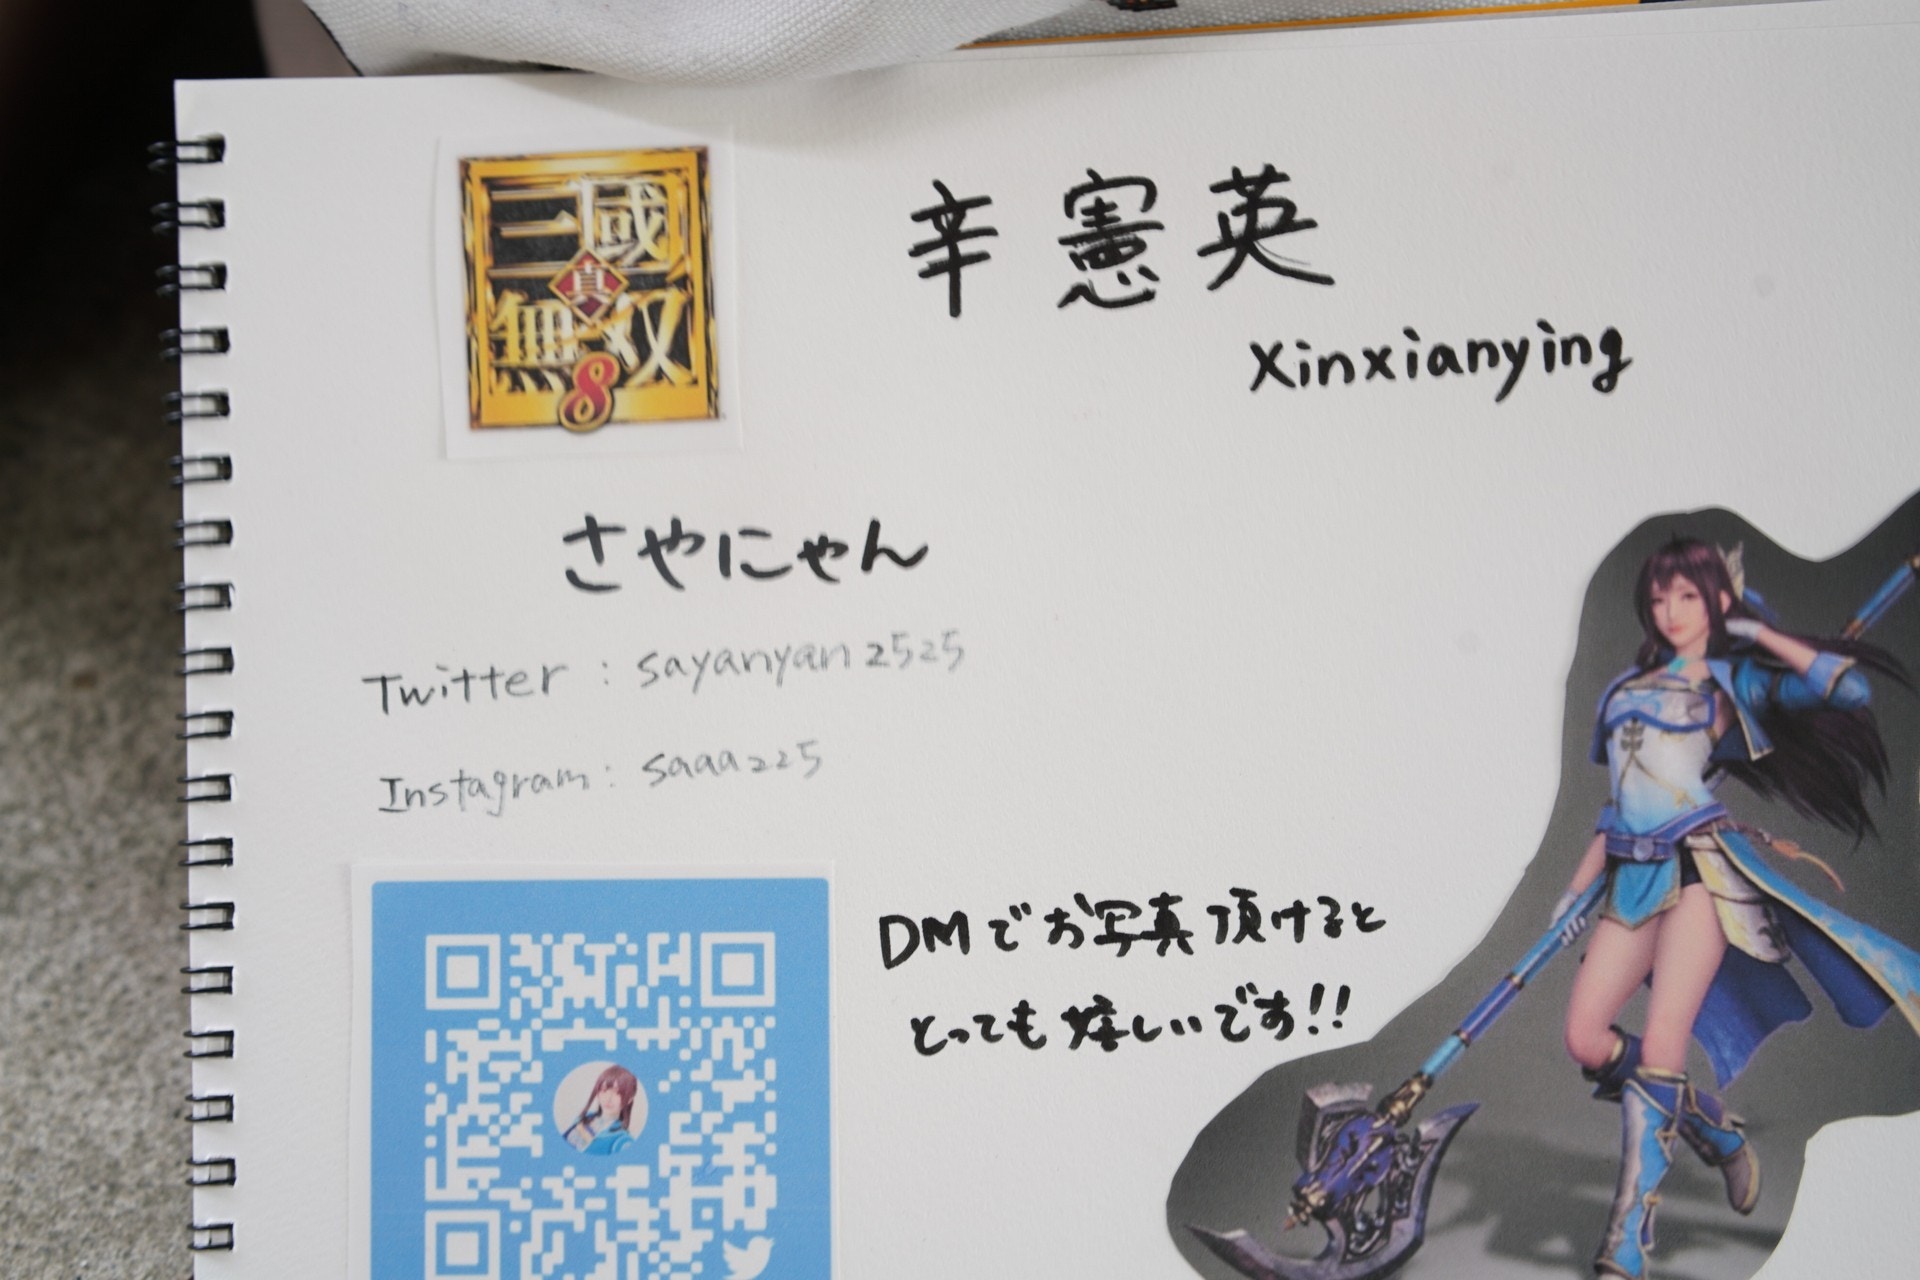 三國
真
無双
8
辛憲英
Xinxianying
さやにゃん
Twitter : sayanyan2525
Instagram : saaa225
DMでお写真頂けると
とっても嬉しいです!!